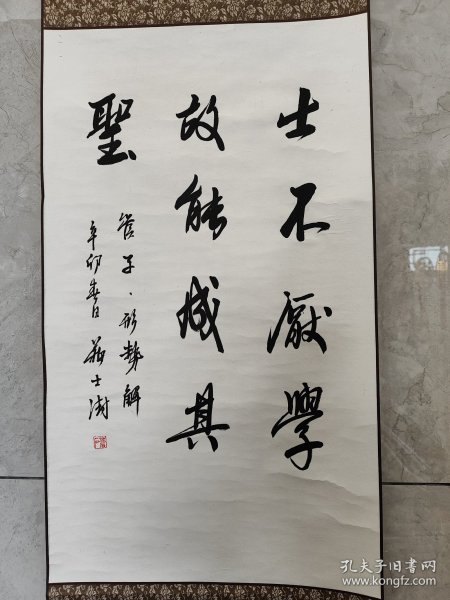 士不厭學
故能成其
聖
管子·形勢解
辛卯春日蘇士澍
孔夫子旧书网
www.kongfz.com